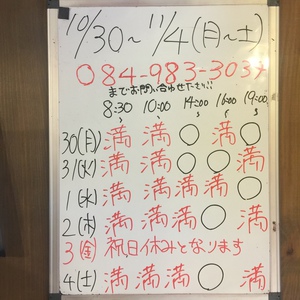 10/30〜11/4(月〜土)
084-983-3037
までお問い合わせください!!
8:30〜 10:00〜 14:00〜 16:00〜 19:00〜
30(月) 満 満 ○ 満 ○
31(火) 満 満 ○ ○ 満
1(水) 満 満 満 満 ○
2(木) 満 満 満 ○ 満
3(金) 祝日休みとなります
4(土) 満 満 満 ○ 満